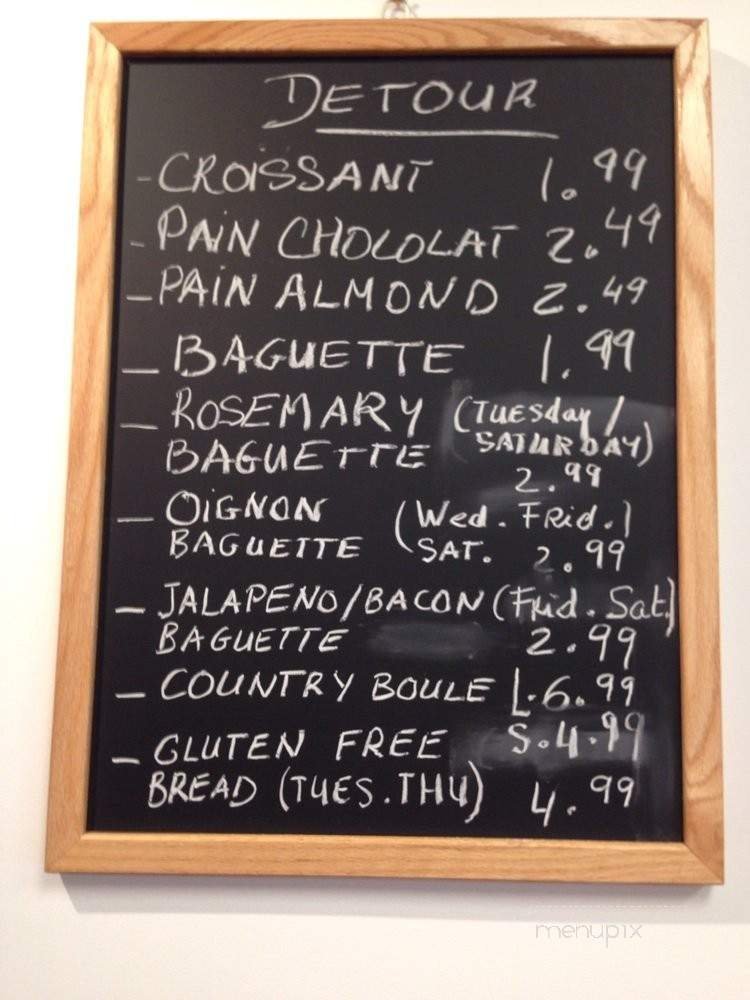 DETOUR
- CROISSANT 1.99
- PAIN CHOCOLAT 2.49
- PAIN ALMOND 2.49
- BAGUETTE 1.99
- ROSEMARY (TUESday /
BAGUETTE SATURDAY)
2.99
- OIGNON (Wed. Frid.)
BAGUETTE SAT. 2.99
- JALAPENO/BACON (Frid. Sat.)
BAGUETTE 2.99
- COUNTRY BOULE L.6.99
S.4.99
- GLUTEN FREE
BREAD (TUES.THU) 4.99
menupix